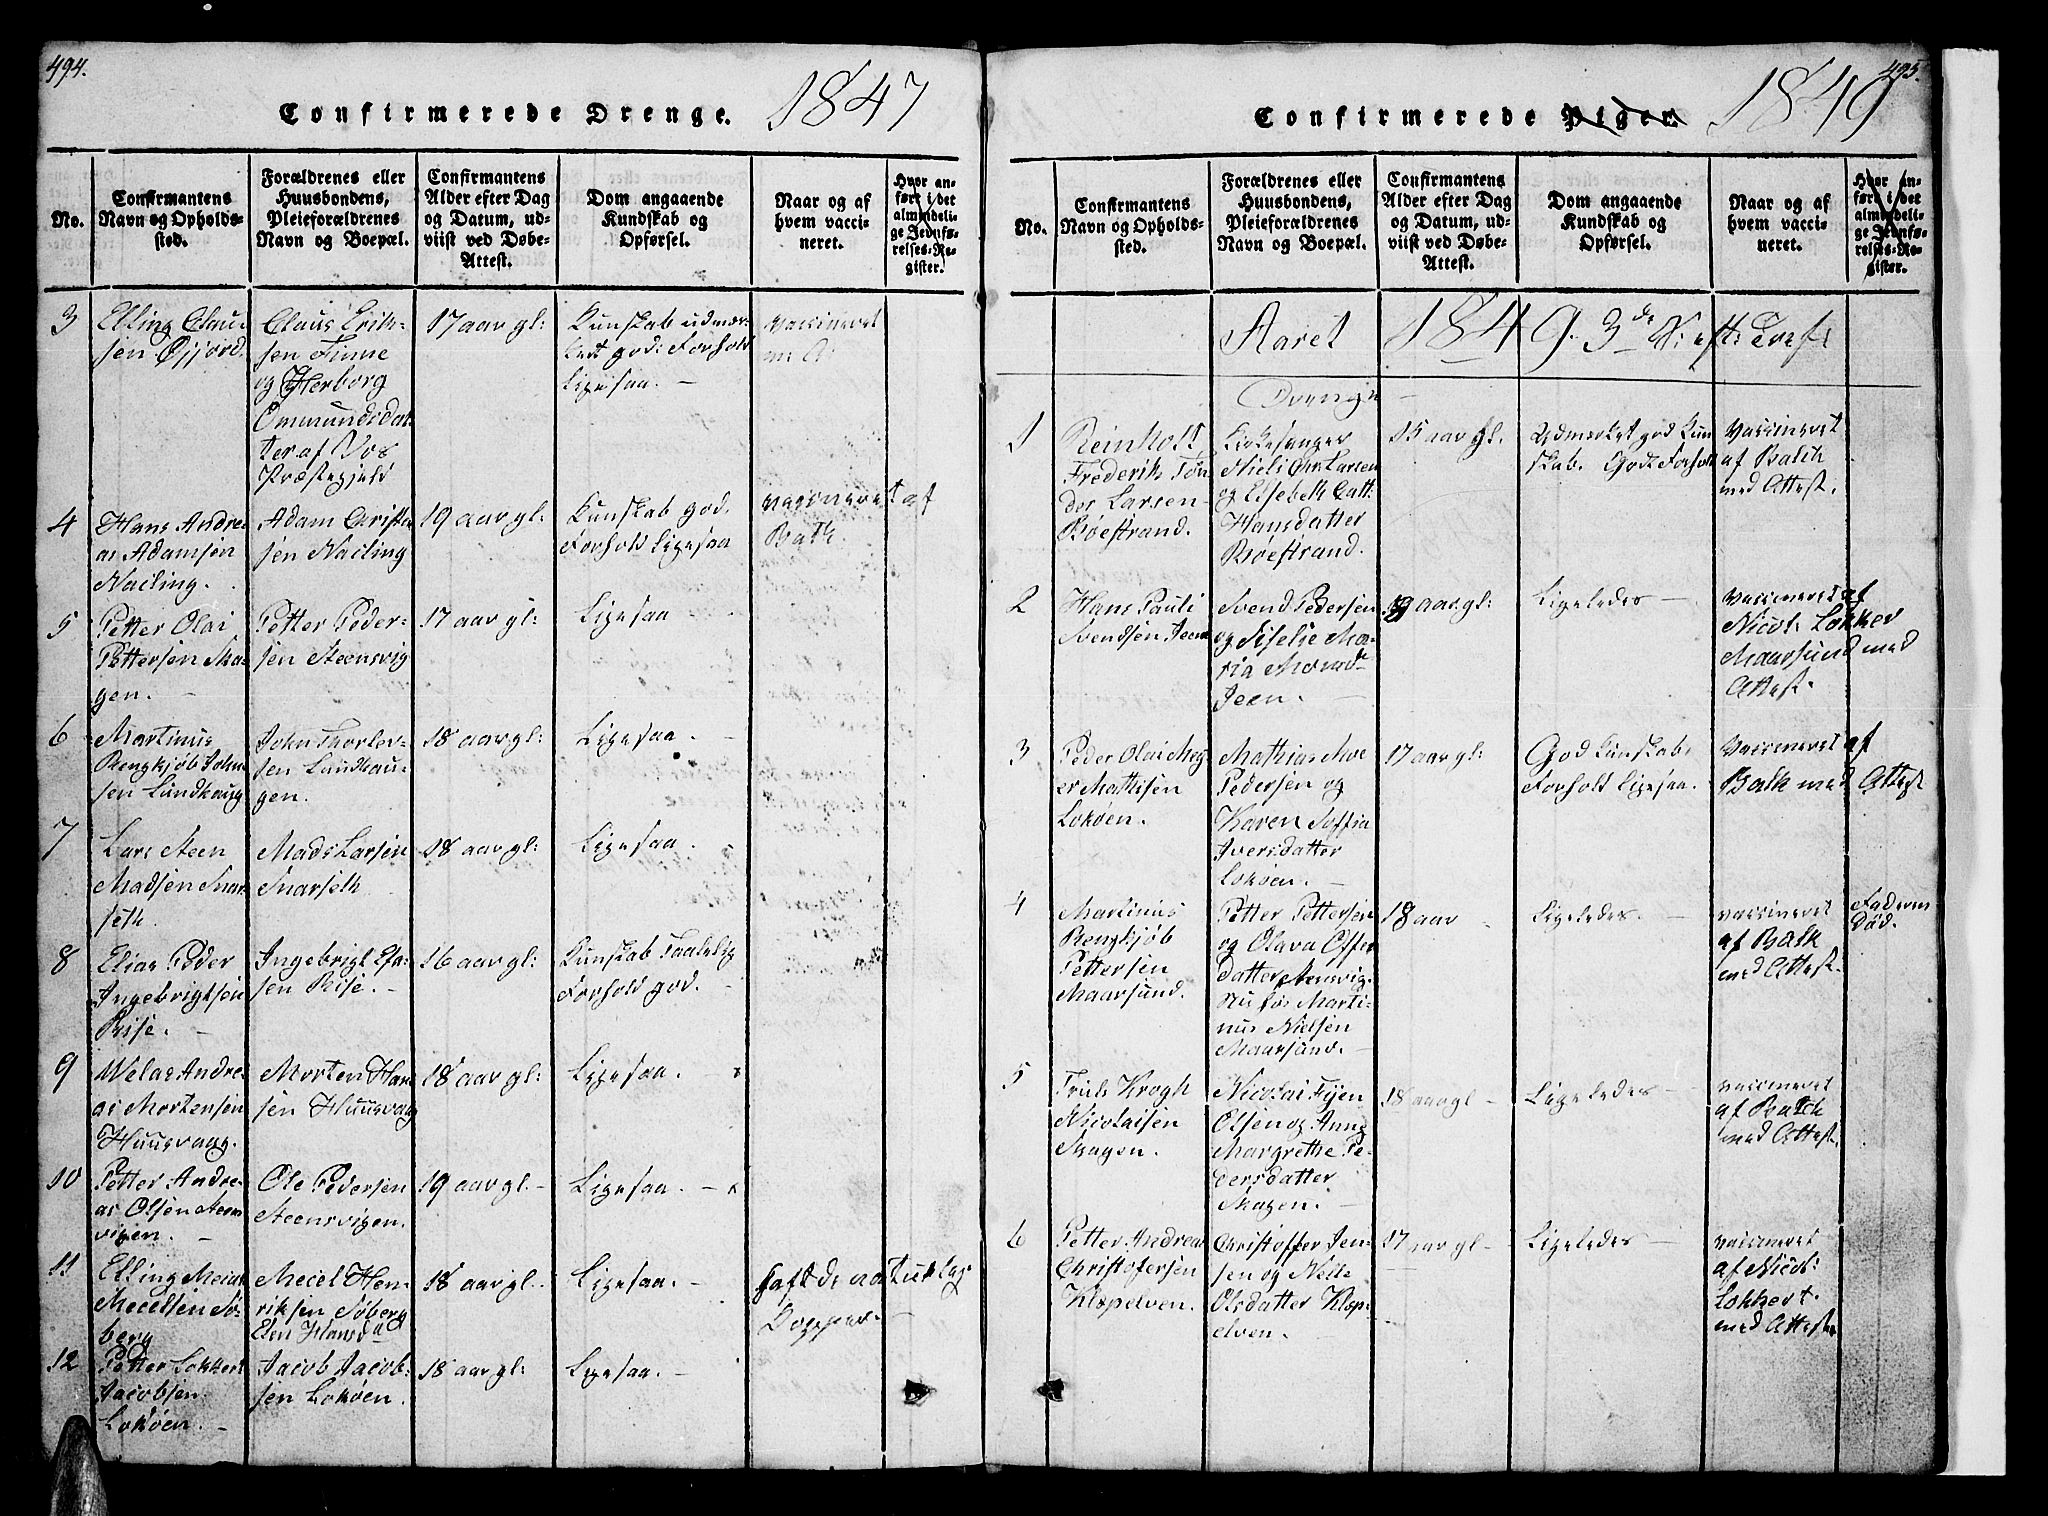 494.
Confirmerede Drenge. 1847
No.
Confirmantens
Navn og Opholds-
sted.
Forældrenes eller
Huusbondens,
Pleieforældrenes
Navn og Boepæl.
Confirmantens
Alder efter Dag
og Datum, ud-
viist ved Døbe-
Attest.
Dom angaaende
Kundskab og
Opførsel.
Naar og af
hvem vacci-
neret.
Hvor an-
ført i det
almindeli-
ge Jevnfø-
relses-Re-
gister.
3
Elling Clau-
sen Øijord
Claus Erik-
sen Finne
og Herborg
Ommundsdat-
ter af Vos
Præstegjeld
17 aar gl:
Kunskab udmær-
ket god: Forhold
Ligesaa. -
vaccineret
4
Hans Andre-
as Adamsen
Nailing.
Adam Christia
sen Nailing
19 aar gl:
Kunskab god.
Forhold Ligesaa
vaccineret af
Bath.
5
Petter Olai
Pettersen Ska-
gen. -
Petter Peder-
sen Steensvig
17 aar gl:
Ligesaa -
6
Martinus
Rengkjøb John
sen Lundhaug
John Thorlev-
sen Lundhau-
gen.
18 aar gl:
Ligesaa. -
7
Lars Steen
Madsen Snar-
seth.
Mads Larsen
Snarseth
18 aar gl:
Ligesaa. -
8
Elias Peder
Ingebrigtsen
Rise. -
Ingebrigt Esa-
sen Rise. -
16 aar gl:
Kunskab Taalelig
Forhold god. -
9
Andre-
as Mortensen
Huusvaag.
Morten Han
sen Huusvaag
18 aar gl:
Ligesaa. -
10
Petter Andre-
as Olsen Steens
vigen. -
Ole Pedersen
Steensvigen.
19 aar gl. -
Ligesaa. -
11
Elling
Meielsen Sø-
berg
Meiel Hen-
riksen Søberg
Elen Hansd
18 aar gl. -
Ligesaa. -
haft de naturlige
Kopper. -
12
Petter Lokkert
Jacobsen
Lokøen. -
Jacob Jacob-
sen Lokøen.
18 aar gl:
Ligesaa. -
495.
Confirmerede Piger. 1849
No.
Confirmantens
Navn og Opholds-
sted.
Forældrenes eller
Huusbondens,
Pleieforældrenes
Navn og Boepæl.
Confirmantens
Alder efter Dag
og Datum, ud-
viist ved Døbe-
Attest.
Dom angaaende
Kundskab og
Opførsel.
Naar og af
hvem vacci-
neret.
Hvor an-
ført i det
almindeli-
ge Jevnfø-
relses-Re-
gister.
Aaret 1849. 3de S. eft: Tref:
Drenge -
1
Reinholt
Frederik Tøn
der Larsen
Bøestrand.
Kirkesanger
Niels Chr Larsen
og Elsebeth Catt:
Hansdatter
Bøestrand.
15 aar gl.
Udmerket god Kun
skab. Godt Forhold
vaccineret
af Balch
med Attest.
2
Hans Pauli
Svendsen Jeen
Svend Pedersen
og Ma-
ria
Jeen. -
19 aar gl:
Ligeledes -
vaccineret af
Nicol: Lokker
Maarsund med
Attest.
3
Peder Olai Mey
er Mattisen
Lokøen.
Mathias Moe
Pedersen og
Karen Soffia
Iversdatter
Lokøen. -
17 aar gl:
God Kunskab.
Forhold Ligesaa.
vaccineret af
Balk med Attest
4
Martinus
Rengkjøb
Pettersen
Maarsund.
Petter Pettersen
og Olava Offer
datter Stensvig.
Nu hos Marti-
nus Nielsen
Maarsund. -
18 aar -
Ligeledes. -
vaccineret
af Balk
med Attest.
Faderen
Død.
5
Truls Krogh
Nicolaisen
Skagen.
Nicolai Fijen
Olsen og Anne
Margrethe Pe-
dersdatter
Skagen. -
18 aar gl -
Ligeledes -
vaccineret
af Balch
med Attest.
6
Petter Andreas
Christofersen
Kløpelven.
Christoffer Jen-
sen og Nelle
Olsdatter Kløp-
elven. -
17 aar gl -
Ligeledes -
vaccineret
af Nicol:
Lokkert.
med Attest